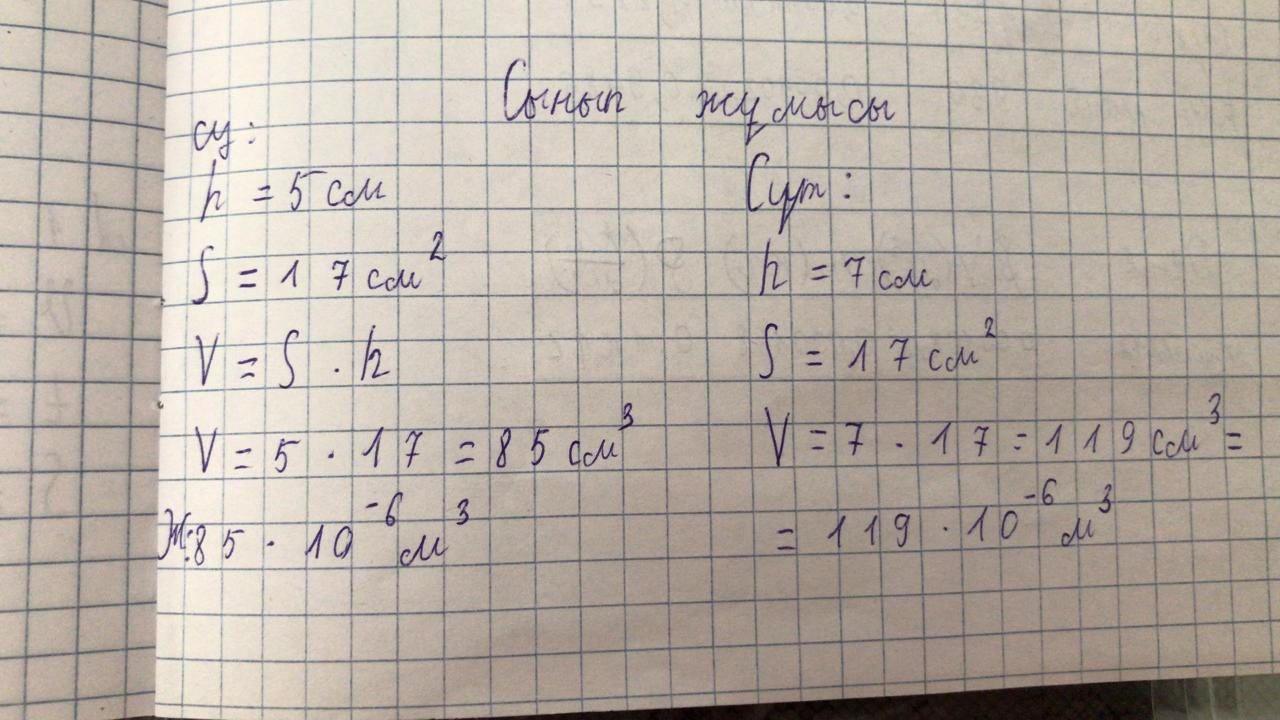 Сынып жұмысы
су:
h = 5 см
S = 17 см²
V = S · h
V = 5 · 17 = 85 см³
Ж: 85 · 10⁻⁶ м³
Сүт:
h = 7 см
S = 17 см²
V = 7 · 17 = 119 см³ =
= 119 · 10⁻⁶ м³